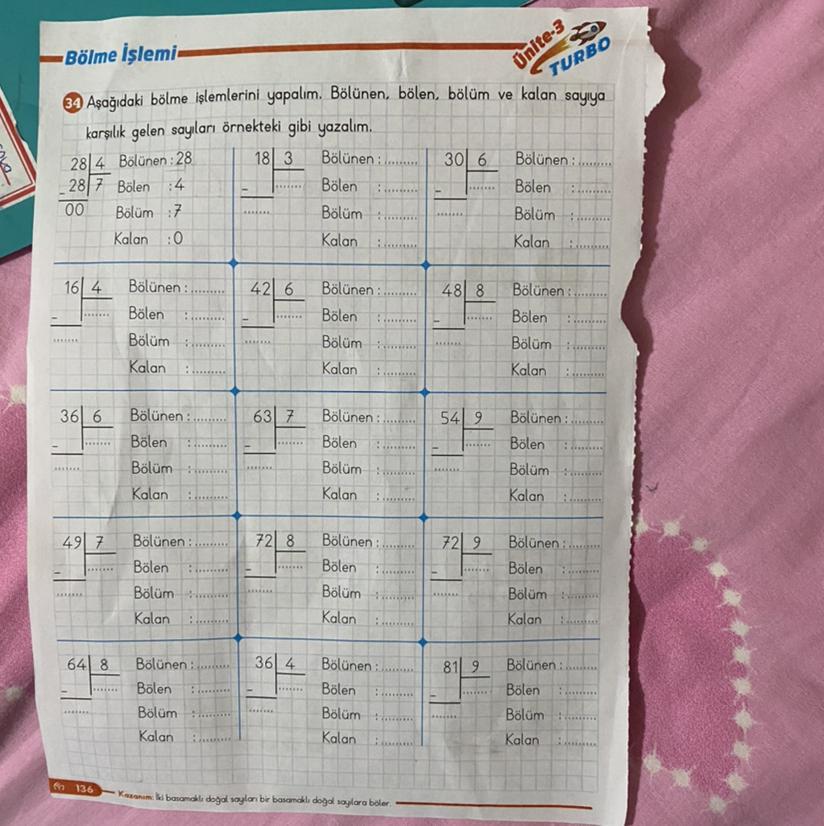 Bölme İşlemi
Ünite-3
TURBO
34 Aşağıdaki bölme işlemlerini yapalım. Bölünen, bölen, bölüm ve kalan sayıya
karşılık gelen sayıları örnekteki gibi yazalım.
28 4 Bölünen : 28
- 28 7 Bölen : 4
00 Bölüm : 7
Kalan : 0
18 3 Bölünen : .........
- ....... Bölen : .........
....... Bölüm : .........
Kalan : .........
30 6 Bölünen : .........
- ....... Bölen : .........
....... Bölüm : .........
Kalan : .........
16 4 Bölünen : .........
- ....... Bölen : .........
....... Bölüm : .........
Kalan : .........
42 6 Bölünen : .........
- ....... Bölen : .........
....... Bölüm : .........
Kalan : .........
48 8 Bölünen : .........
- ....... Bölen : .........
....... Bölüm : .........
Kalan : .........
36 6 Bölünen : .........
- ....... Bölen : .........
....... Bölüm : .........
Kalan : .........
63 7 Bölünen : .........
- ....... Bölen : .........
....... Bölüm : .........
Kalan : .........
54 9 Bölünen : .........
- ....... Bölen : .........
....... Bölüm : .........
Kalan : .........
49 7 Bölünen : .........
- ....... Bölen : .........
....... Bölüm : .........
Kalan : .........
72 8 Bölünen : .........
- ....... Bölen : .........
....... Bölüm : .........
Kalan : .........
72 9 Bölünen : .........
- ....... Bölen : .........
....... Bölüm : .........
Kalan : .........
64 8 Bölünen : .........
- ....... Bölen : .........
....... Bölüm : .........
Kalan : .........
36 4 Bölünen : .........
- ....... Bölen : .........
....... Bölüm : .........
Kalan : .........
81 9 Bölünen : .........
- ....... Bölen : .........
....... Bölüm : .........
Kalan : .........
136
Kazanım: İki basamaklı doğal sayıları bir basamaklı doğal sayılara böler.